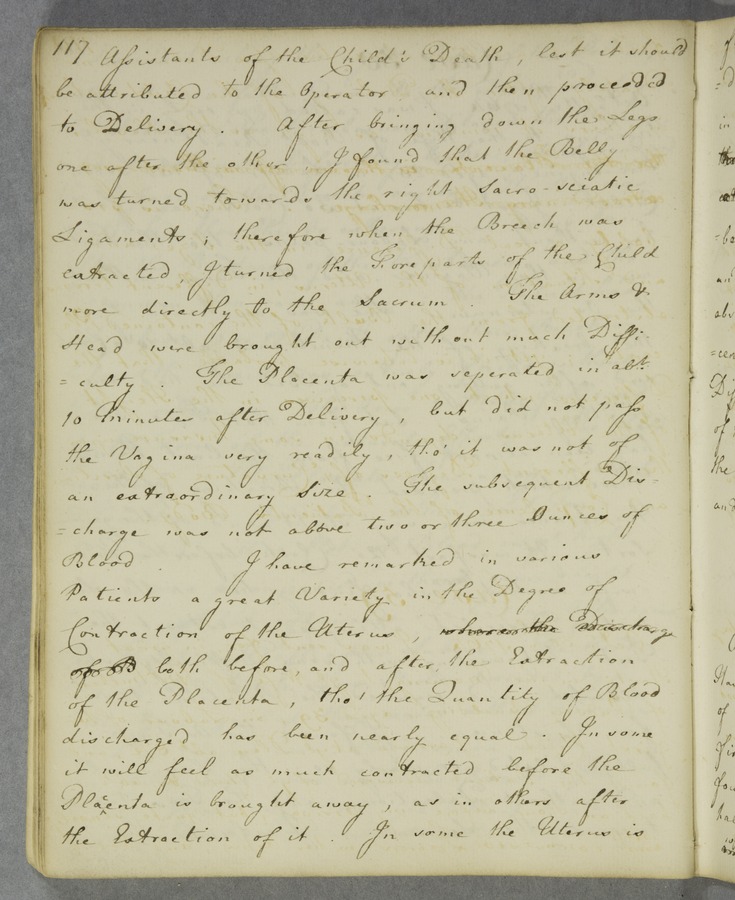 117 Assistants of the Child's Death, lest it should
be attributed to the Operator and then proceeded
to Delivery. After bringing down the Legs
one after the other, I found that the Belly
was turned towards the right Sacro-sciatic
Ligaments; therefore when the Breech was
extracted, I turned the Foreparts of the Child
more directly to the Sacrum. The Arms &
Head were brought out without much Diffi
=culty. The Placenta was seperated in abt.
10 Minutes after Delivery, but did not pass
the Vagina very readily, tho' it was not of
an extraordinary Size. The subsequent Dis-
=charge was not above two or three Ounces of
Blood. I have remarked in various
Patients a great Variety in the Degree of
Contraction of the Uterus, the Discharge
of both before, and after, the Extraction
of the Placenta, tho' the Quantity of Blood
discharged has been nearly equal. In some
it will feel as much contracted before the
Placenta is brought away, as in others after
the Extraction of it. In some the Uterus is